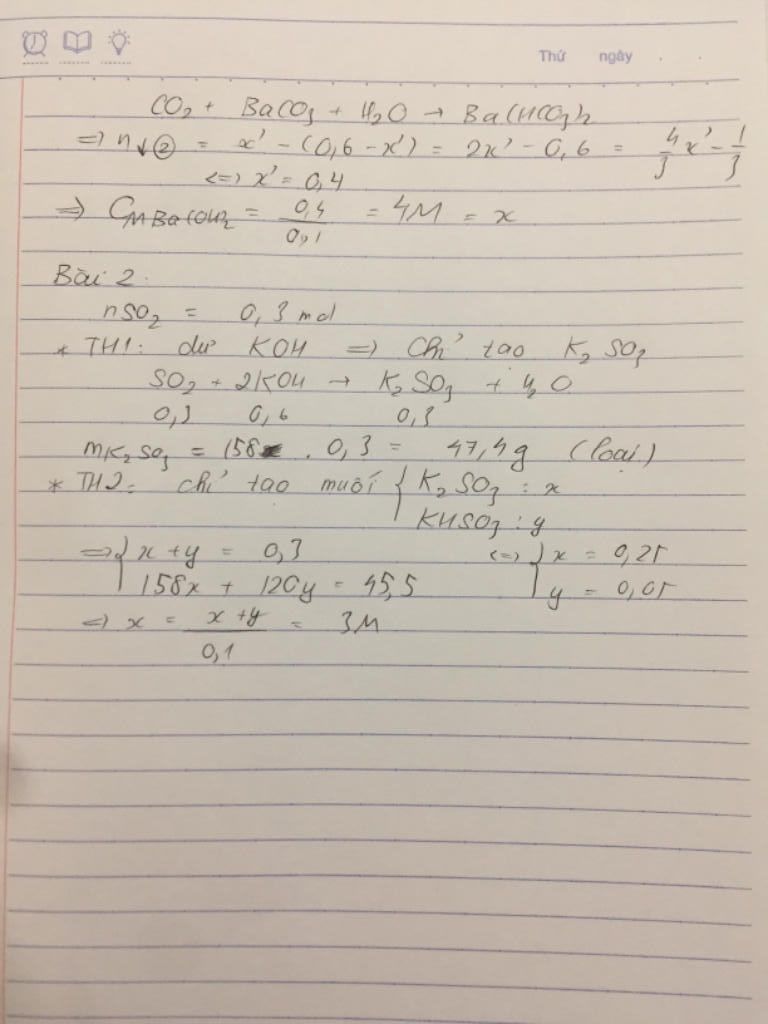 Thứ ngày . .
CO₂ + BaCO₃ + H₂O → Ba(HCO₃)₂
=> n↓② = x' - (0,6 - x') = 2x' - 0,6 = 4/3 x' - 1/3
<=> x' = 0,4
=> CM Ba(OH)₂ = 0,4/0,1 = 4M = x
Bài 2.
nSO₂ = 0,3 mol
* TH1: dư KOH => Chỉ tạo K₂SO₃
SO₂ + 2KOH → K₂SO₃ + H₂O
0,3 0,6 0,3
mK₂SO₃ = 158 . 0,3 = 47,4g (loại)
* TH2: chỉ tạo muối { K₂SO₃ : x
KHSO₃ : y
=> { x + y = 0,3 <=> { x = 0,25
158x + 120y = 45,5 y = 0,05
=> x = x+y/0,1 = 3M